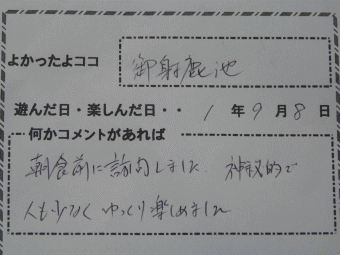 よかったよココ 御射鹿池
遊んだ日・楽しんだ日・・ 1年9月8日
何かコメントがあれば
朝食前に訪問しました 神秘的で
人も少なく ゆっくり楽しめました